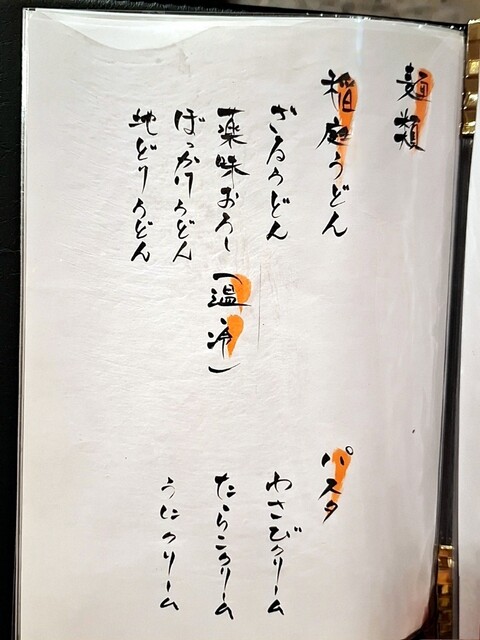 麺類
稲庭うどん
ざるうどん
薬味おろし(温・冷)
ぼっかけうどん
地どりうどん
パスタ
わさびクリーム
たらこクリーム
うにクリーム